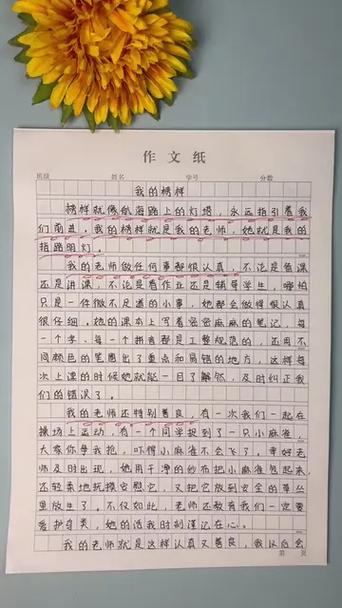 作文纸
班级 姓名 学号 分数
我的榜样
榜样就像航海路上的灯塔，永远指引着我
们前进。我的榜样就是我的老师，她就是我的
指路明灯。
我的老师做任何事都很认真，不论是备课
还是讲课，不论是看作业还是辅导学生，哪怕
只是一件微不足道的小事，她都会做得很认真
很仔细。她的课本上写着密密麻麻的笔记，每
一个字，每一个拼音都是工整规范的，还用不
同颜色的笔圈出了重点和易错的地方，这样每
次上课的时候她就能一目了解然，及时纠正我
们的错误了。
我的老师还特别善良，有一次我们一起在
操场上运动，有一个同学捉到了一只小麻雀，
大家你争我抢，吓得小麻雀不会飞了。幸好老
师及时出现，她用干净的纱布把小麻雀包起来，
还轻柔地抚摸安慰它，又把它放到安全的草丛
里放生了。不仅如此，老师还教育我们一定要
爱护鸟类，她的话我时刻谨记在心。
我的老师就是这样认真又善良，我以后会
第 页